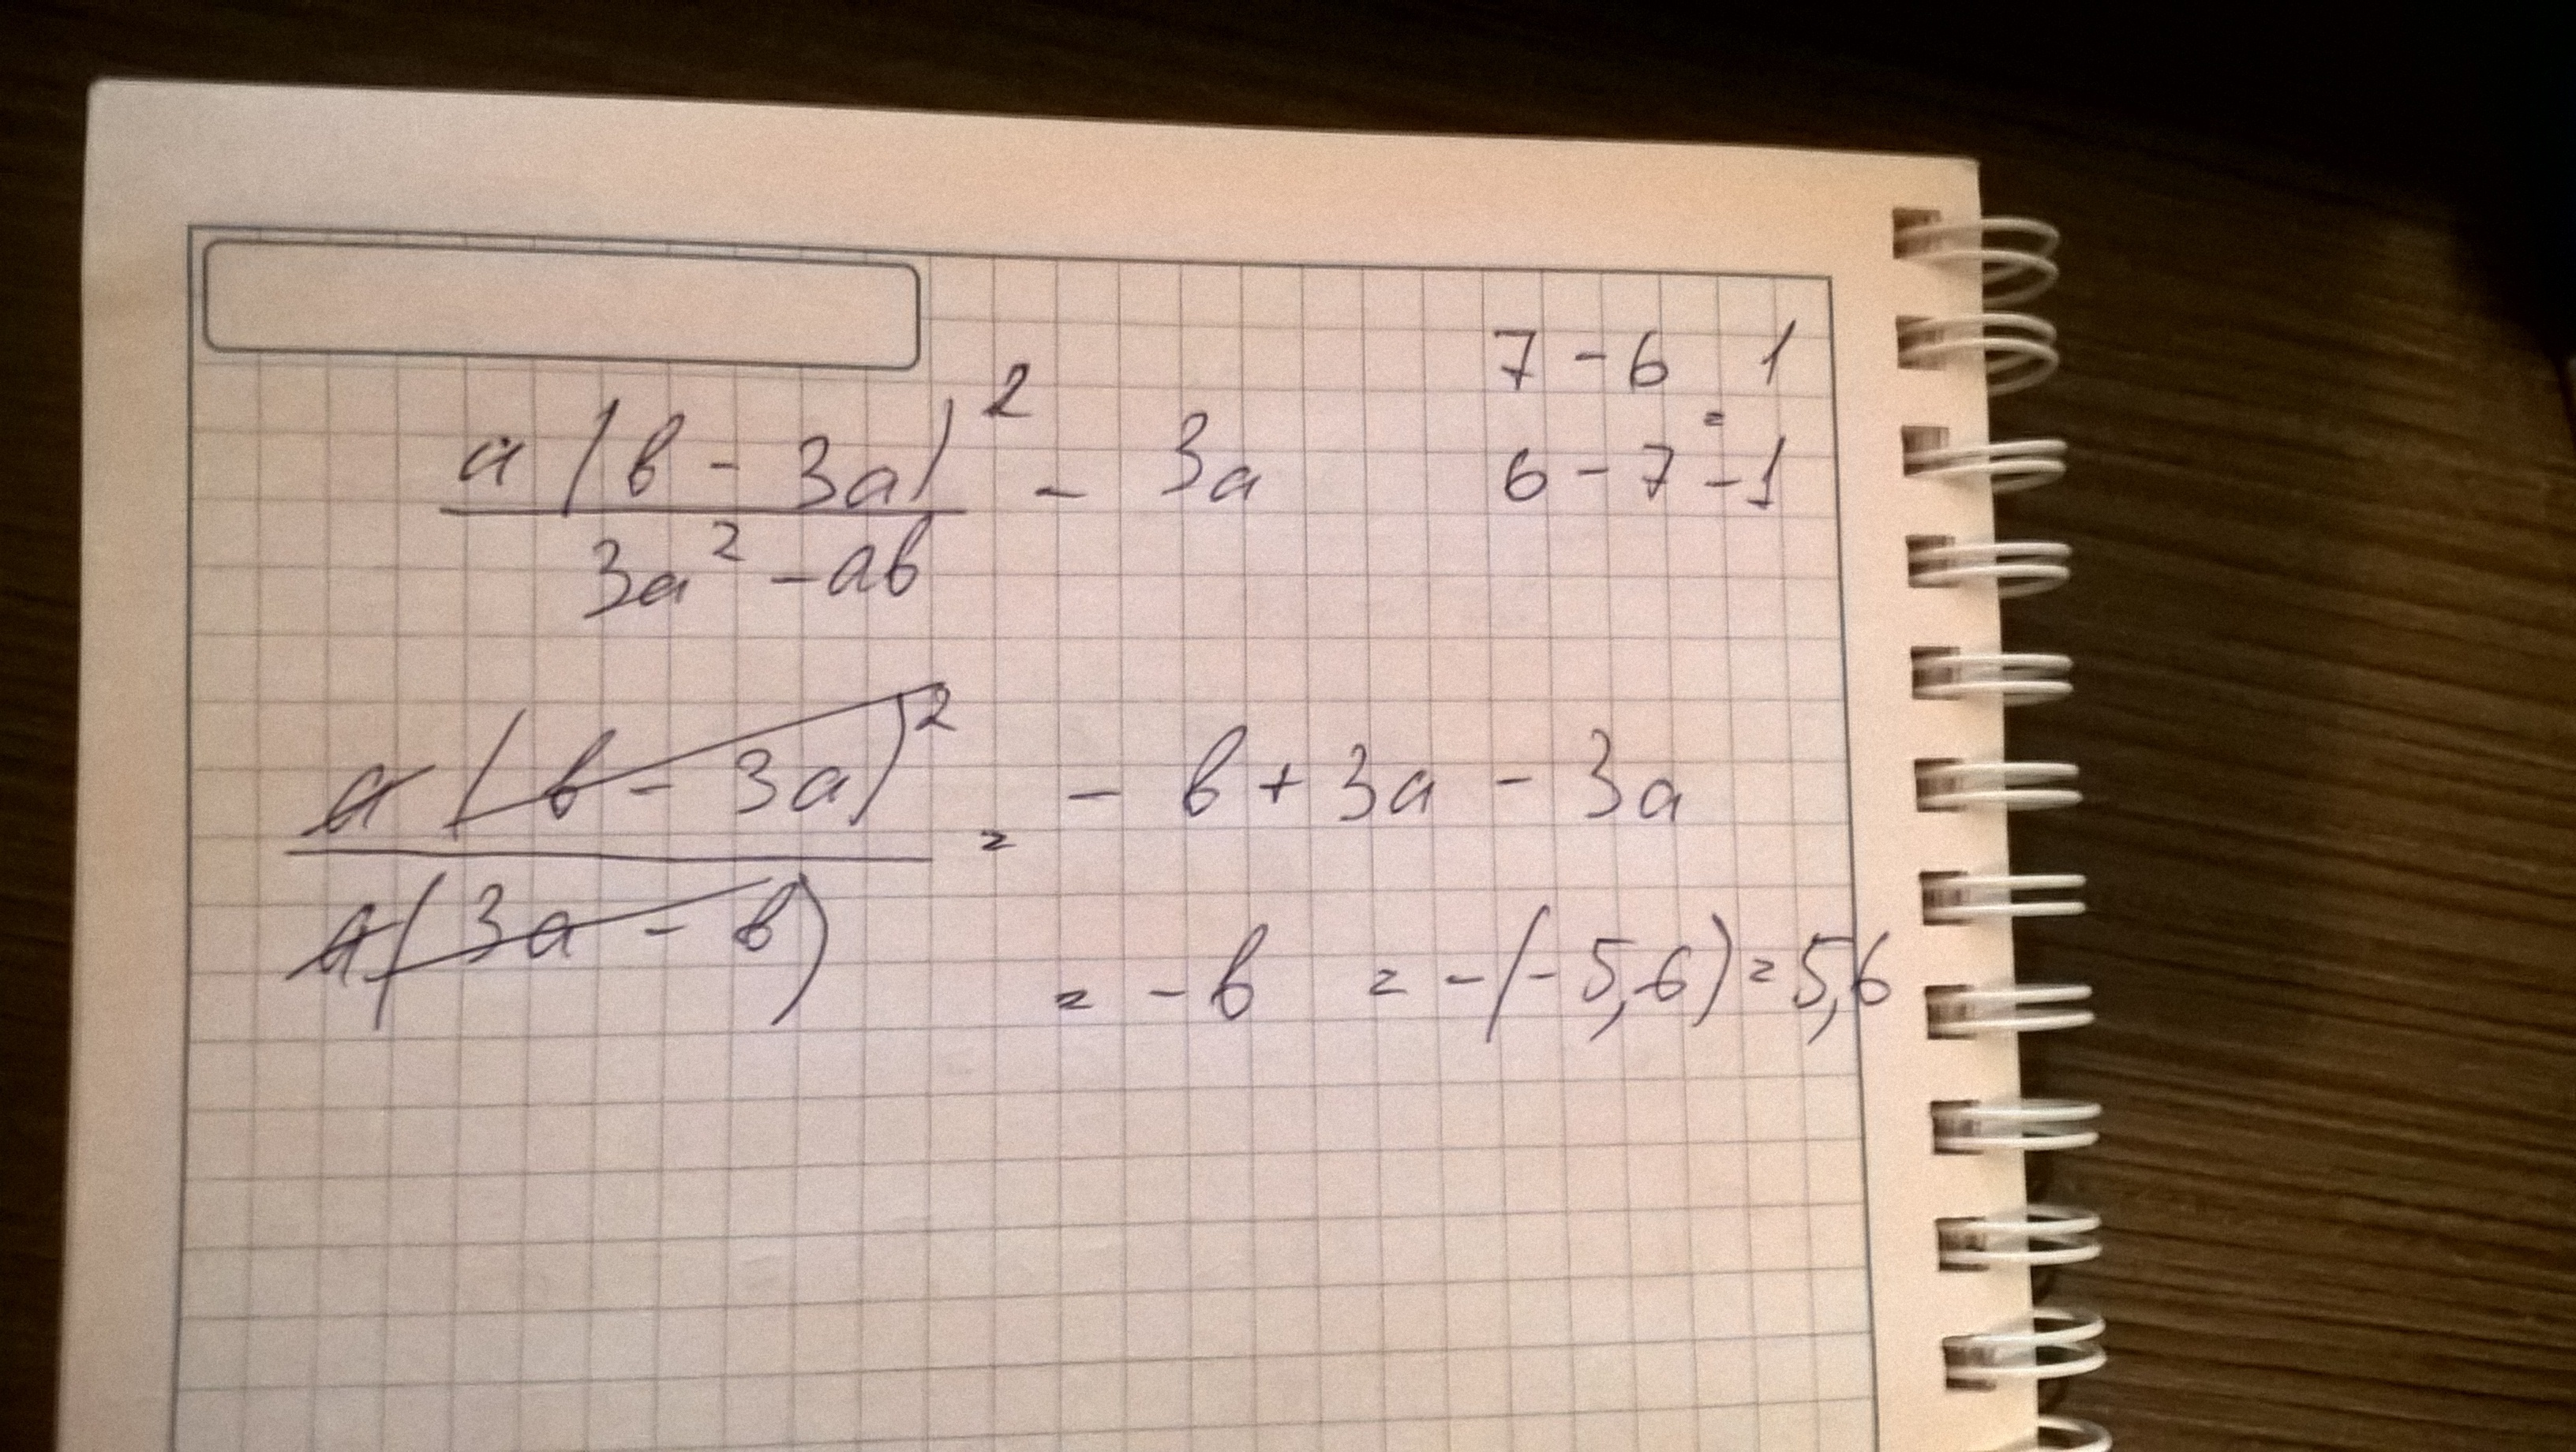 a(b - 3a)² - 3a
3a² - ab
7 - 6 = 1
6 - 7 = -1
a(b - 3a)² = - b + 3a - 3a
a(3a - b)
= - b = -(-5,6) = 5,6